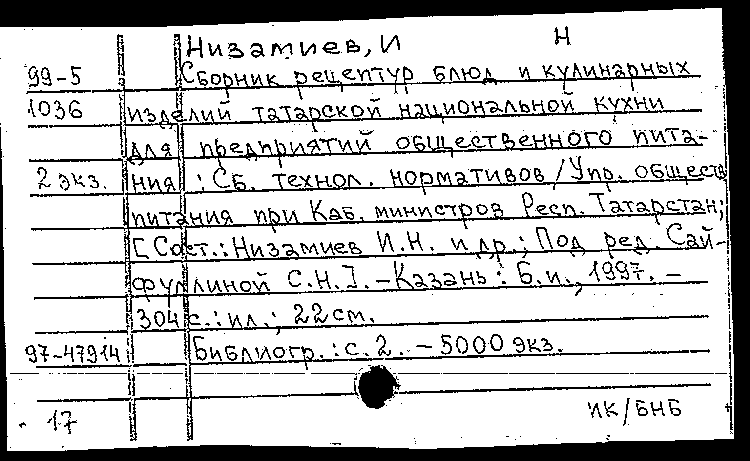 Низамиев, И Н
99-5 Сборник рецептур блюд и кулинарных
1036 изделий татарской национальной кухни
для предприятий общественного пита-
2 экз. ния : Сб. технол. нормативов / Упр. обществ
питания при Каб. министров Респ. Татарстан;
[Сост.: Низамиев И.Н. и др.; Под ред. Сай-
фуллиной С.Н.]. - Казань : Б.и., 1997. -
304 с. : ил.; 22 см.
97-47914 Библиогр. : с. 2. - 5000 экз.
17 ИК/БНБ